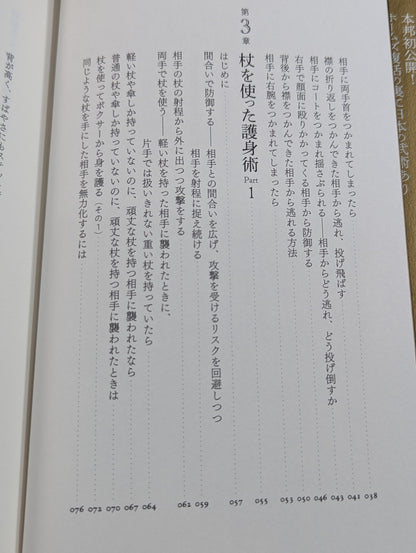 相手に両手首をつかまれてしまったら 038
襟の折り返しをつかんできた相手から逃れ、投げ飛ばす 041
相手にコートをつかまれ揺さぶられる――相手からどう逃れ、どう投げ倒すか 043
右手で顔面に殴りかかってくる相手から防御する 046
背後から襟をつかんできた相手から逃れる方法 050
相手に右腕をつかまれてしまったら 053
第3章 杖を使った護身術 Part 1 055
はじめに 057
間合いで防御する――相手との間合いを広げ、攻撃を受けるリスクを回避しつつ
相手を射程に捉え続ける 059
相手の杖の射程から外に出つつ攻撃をする 062
両手で杖を使う――軽い杖を持った相手に襲われたときに、
片手では扱いきれない重い杖を持っていたら 064
軽い杖や傘しか持っていないのに、頑丈な杖を持つ相手に襲われたなら 067
普通の杖や傘しか持っていないのに、頑丈な杖を持つ相手に襲われたときは 070
杖を使ってボクサーから身を護る(その1) 072
同じような杖を手にした相手を無力化するには 076
背が高く、すばやさにも